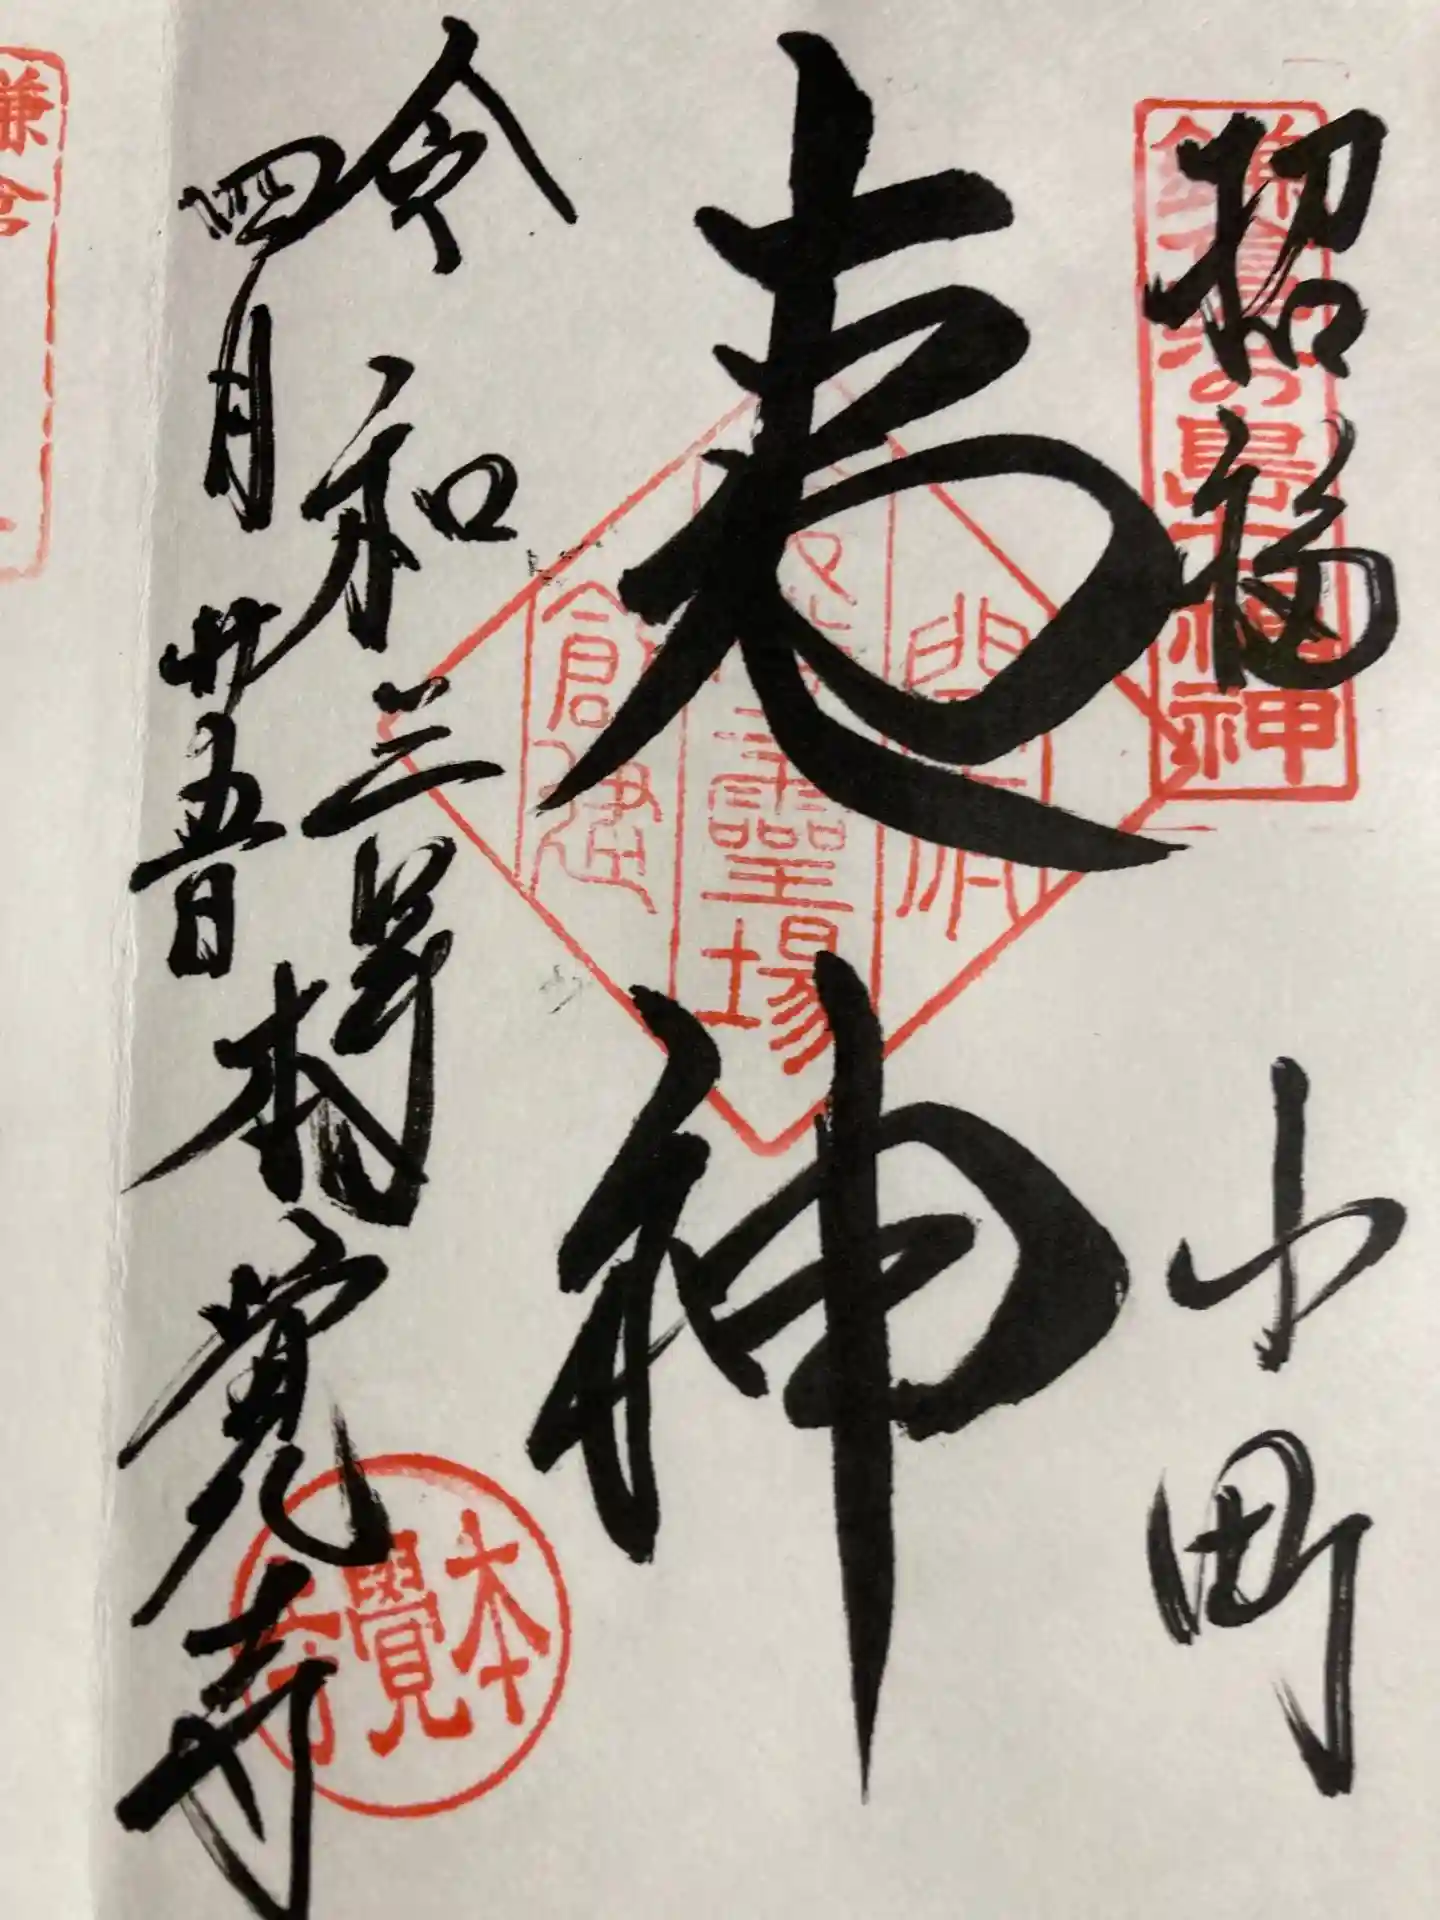 招福
小町
鎌倉江の島七福神
夷神
靈場
創建
令和三年
四月廿五日
本覚寺
本覺寺
鎌倉